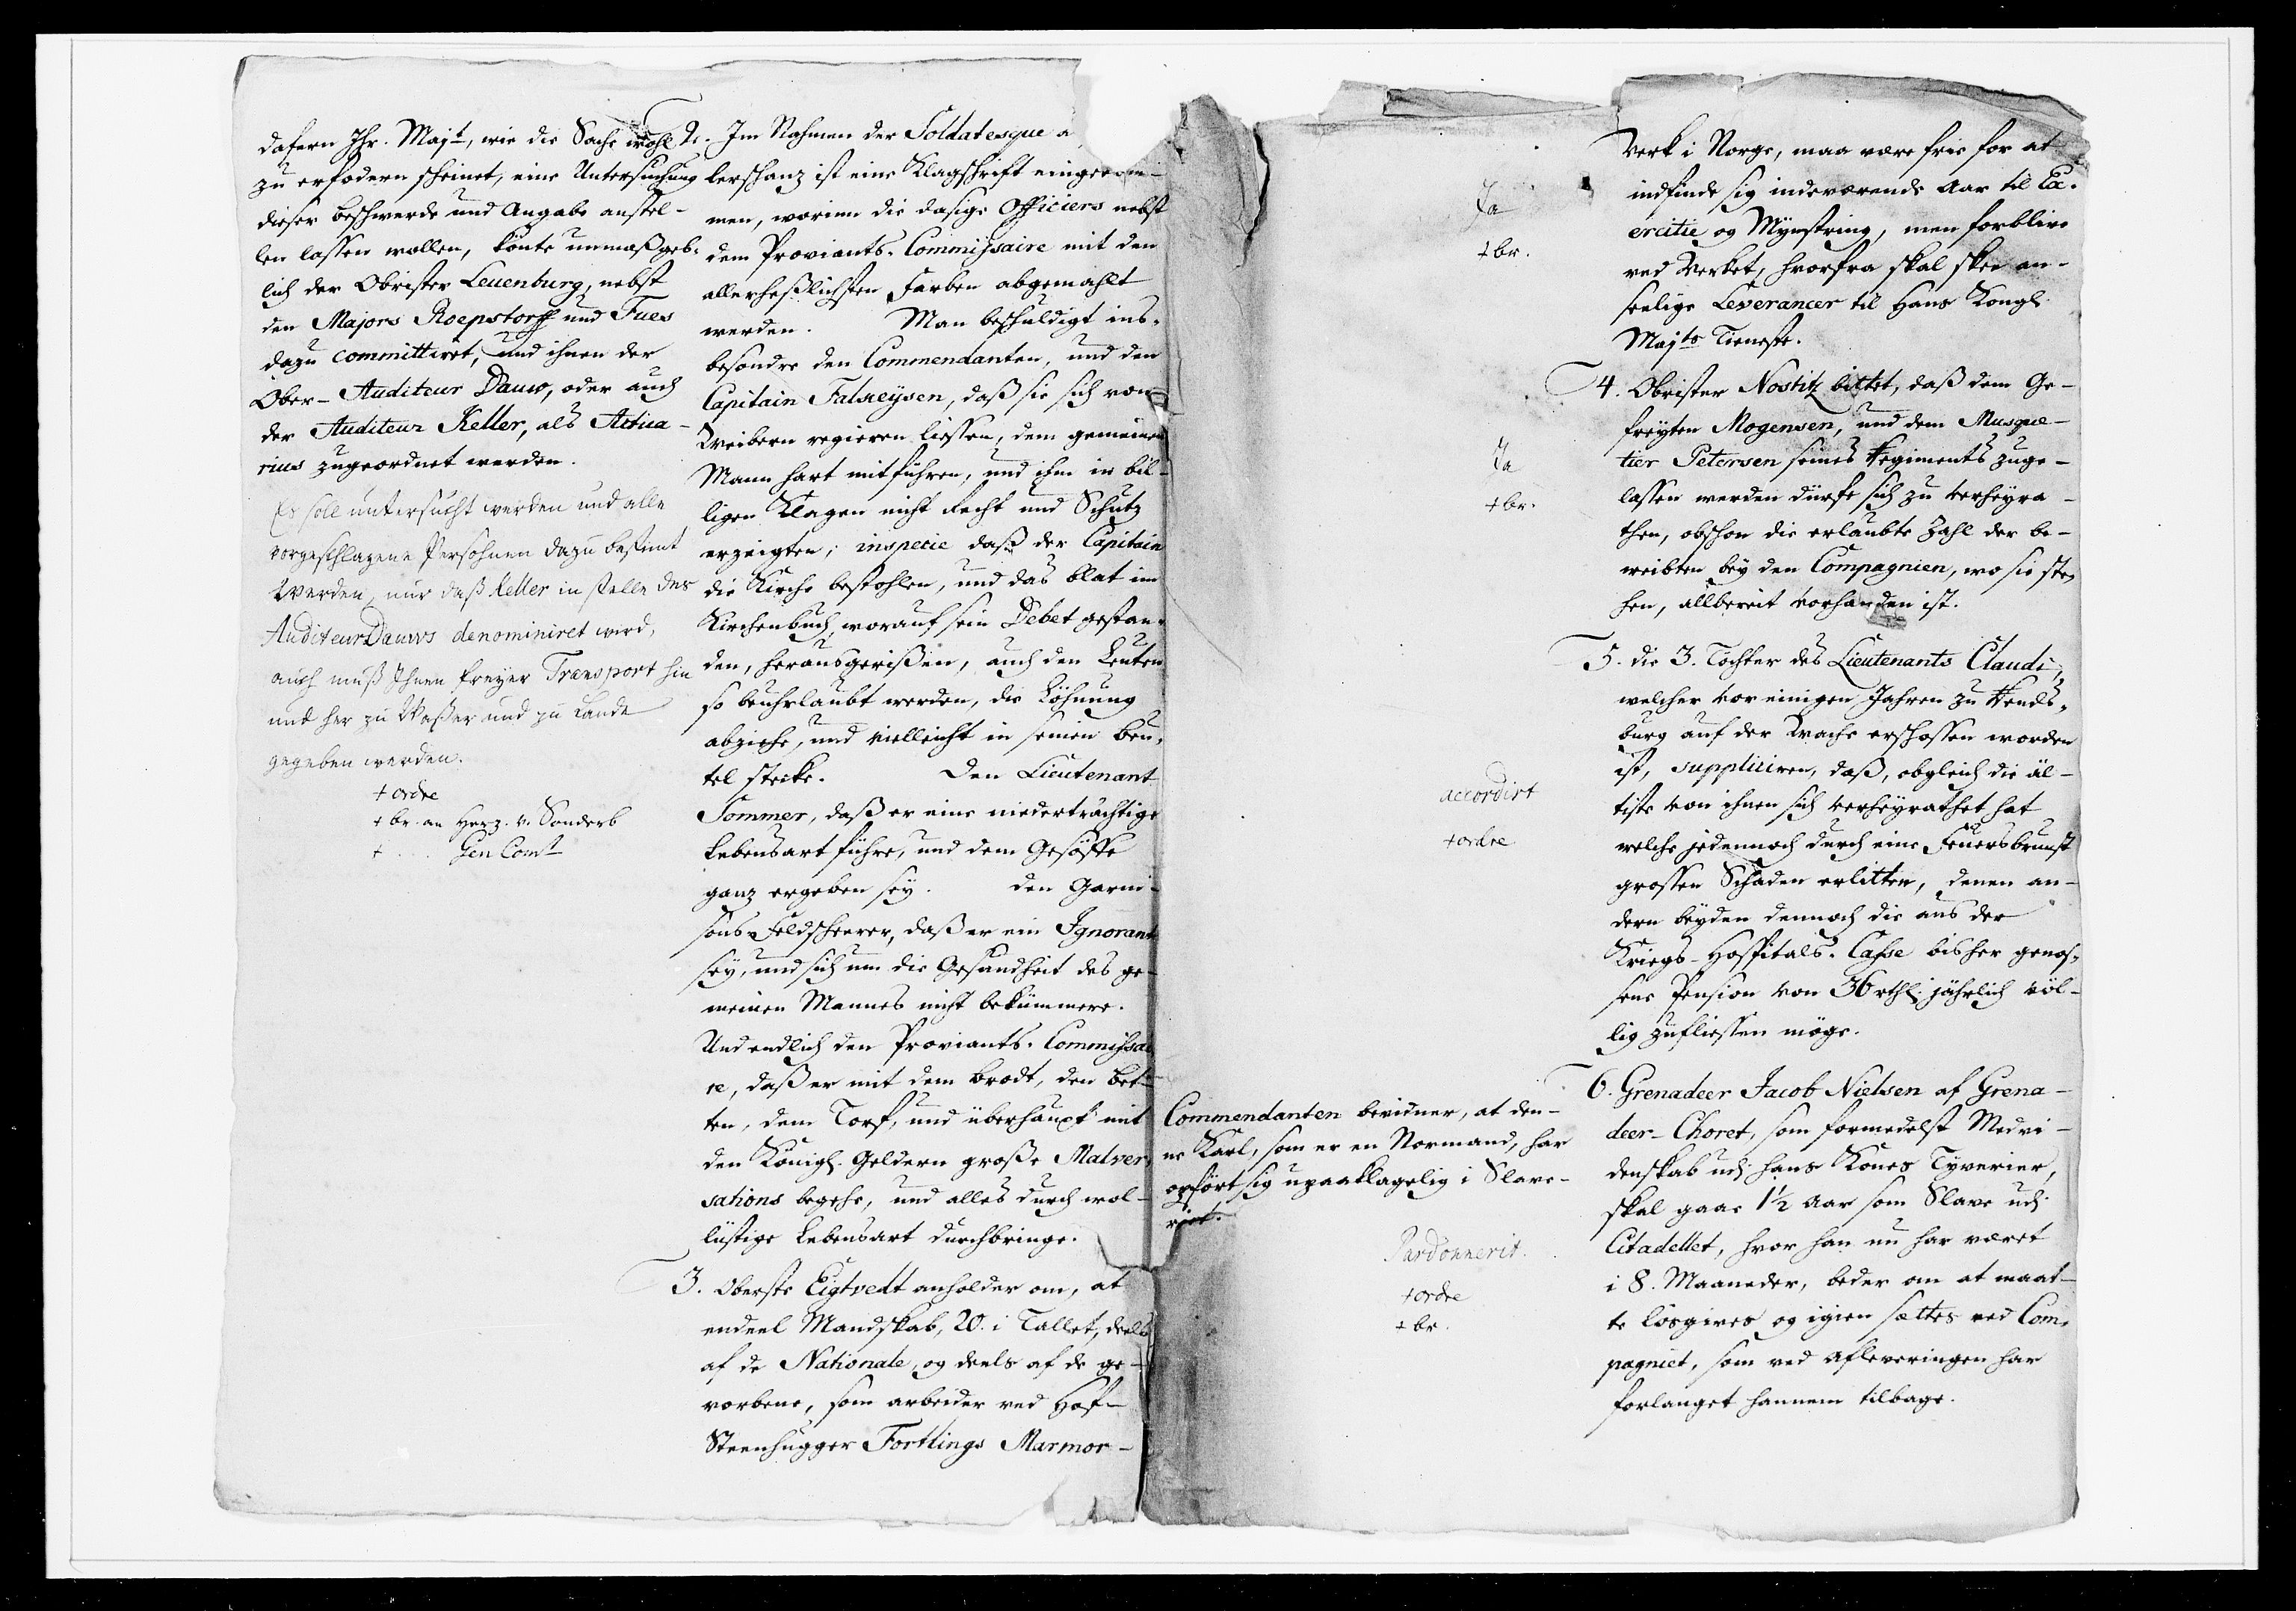 dafern Ihr. Majt, wie die Sache wohl
zu erfodern scheinet, eine Untersuchung
dieser beschwerde und Angabe anstel-
len lassen wollen, könte unmaßgeb-
lich der Obrister Leuenburg, nebst
den Majors Roepstorff und Fues
dazu committiret, und ihnen der
Ober-Auditeur Dauw, oder auch
der Auditeur Keller, als Actua-
rius zugeordnet werden.
Es soll untersucht werden und alle
vorgeschlagene Persohnen dazu bestimt
Werden, nur daß Keller in stelle des
Auditeur Dauws denominiret werd,
auch muß Ihnen freyer Transport hin
und her zu Waßer und zu Lande
gegeben werden.
+ ordre
+ br. an Herz. v. Sonderb
+ . . Gen Comt
2. Im Nahmen der Soldatesque a
lerschanz ist eine Klagschrift eingekom-
men, worinn die dasige Officiers nebst
dem Proviants-Commissaire mit den
allerheßlichsten Farben abgemahlt
werden. Man beschuldigt ins-
besondre den Commendanten, und den
Capitain Falseysen, daß sie sich von
Weibern regieren liessen, dem gemeinen
Mann hart mitführen, und ihm in bil-
ligen Klagen nicht Recht und Schutz
erzeigten; inspecie daß der Capitain
die Kirche bestohlen, und das blat im
Kirchenbuch, worauf sein Debet gestan-
den, herausgerißen, auch den Leuten
so beuhrlaubt werden, die Löhnung
abziehe, und vielleicht in seinen beu-
tel stecke. Den Lieutenant
Sommer, daß er eine niederträchtige
Lebensart führe, und dem Gesöffe
ganz ergeben sey. den Garni-
sons-Feldscheerer, daß er ein Ignorant
sey, und sich um die Gesundheit des ge-
meinen Mannes nicht bekümmere.
Und endlich den Proviants-Commissai-
re, daß er mit dem brodt, den bet-
ten, dem Torf, und überhaupt mit
den Königl. Geldern große Malver-
sations begehe, und alles durch wol-
lüstige Lebensart durchbringe.
3. Oberste Eigtvedt anholder om, at
endeel Mandskab, 20. i Tallet, deels
af de Nationale, og deels af de ge-
vorbene, som arbeider ved Hof-
Steenhugger Fortlings Marmor-
Verk i Norge, maa være frie for at
indfinde sig indeværende Aar til Ex-
ercitie og Mynstring, men forblive
ved Verket, hvorfra skal skee an-
seelige Leverancer til Hans Kongl.
Majts Tieneste.
Ja
+ br.
4. Obrister Nostitz bittet, daß dem Ge-
freyten Mogensen, und dem Musque-
tier Petersen seines Regiments zuge-
lassen werden dürfe sich zu verheyra-
then, obschon die erlaubte Zahl der be-
weibten bey den Compagnien, wo sie ste-
hen, allbereit vorhanden ist.
Ja
+ br.
5. die 3. Töchter des Lieutenants Claudi,
welcher vor einigen Jahren zu Rends-
burg auf der Wache erschossen worden
ist, suppliciren, daß, obgleich die äl-
tiste von ihnen sich verheyrathet hat
welche jedennoch durch eine Feuersbrunst
grossen Schaden erlitten, denen an-
dern beyden dennoch die aus der
Kriegs-Hospitals-Casse bisher genos-
sene Pension von 36 rthl. jährlich völ-
lig zufliessen möge.
accordirt
+ ordre
6. Grenadeer Jacob Nielsen af Grena-
deer-Choret, som formedelst Medvi-
denskab udi hans Kones Tyverier,
skal gaae 1½ Aar som Slave udi
Citadellet, hvor han nu har været
i 8. Maaneder, beder om at maat-
te løsgives og igien sættes ved Com-
pagniet, som ved afleveringen har
forlanget hannem tilbage.
Commendanten bevidner, at den-
ne Karl, som er en Normand, har
opført sig upaaklagelig i Slave-
riet.
Pardonnerit.
+ ordre
+ br.